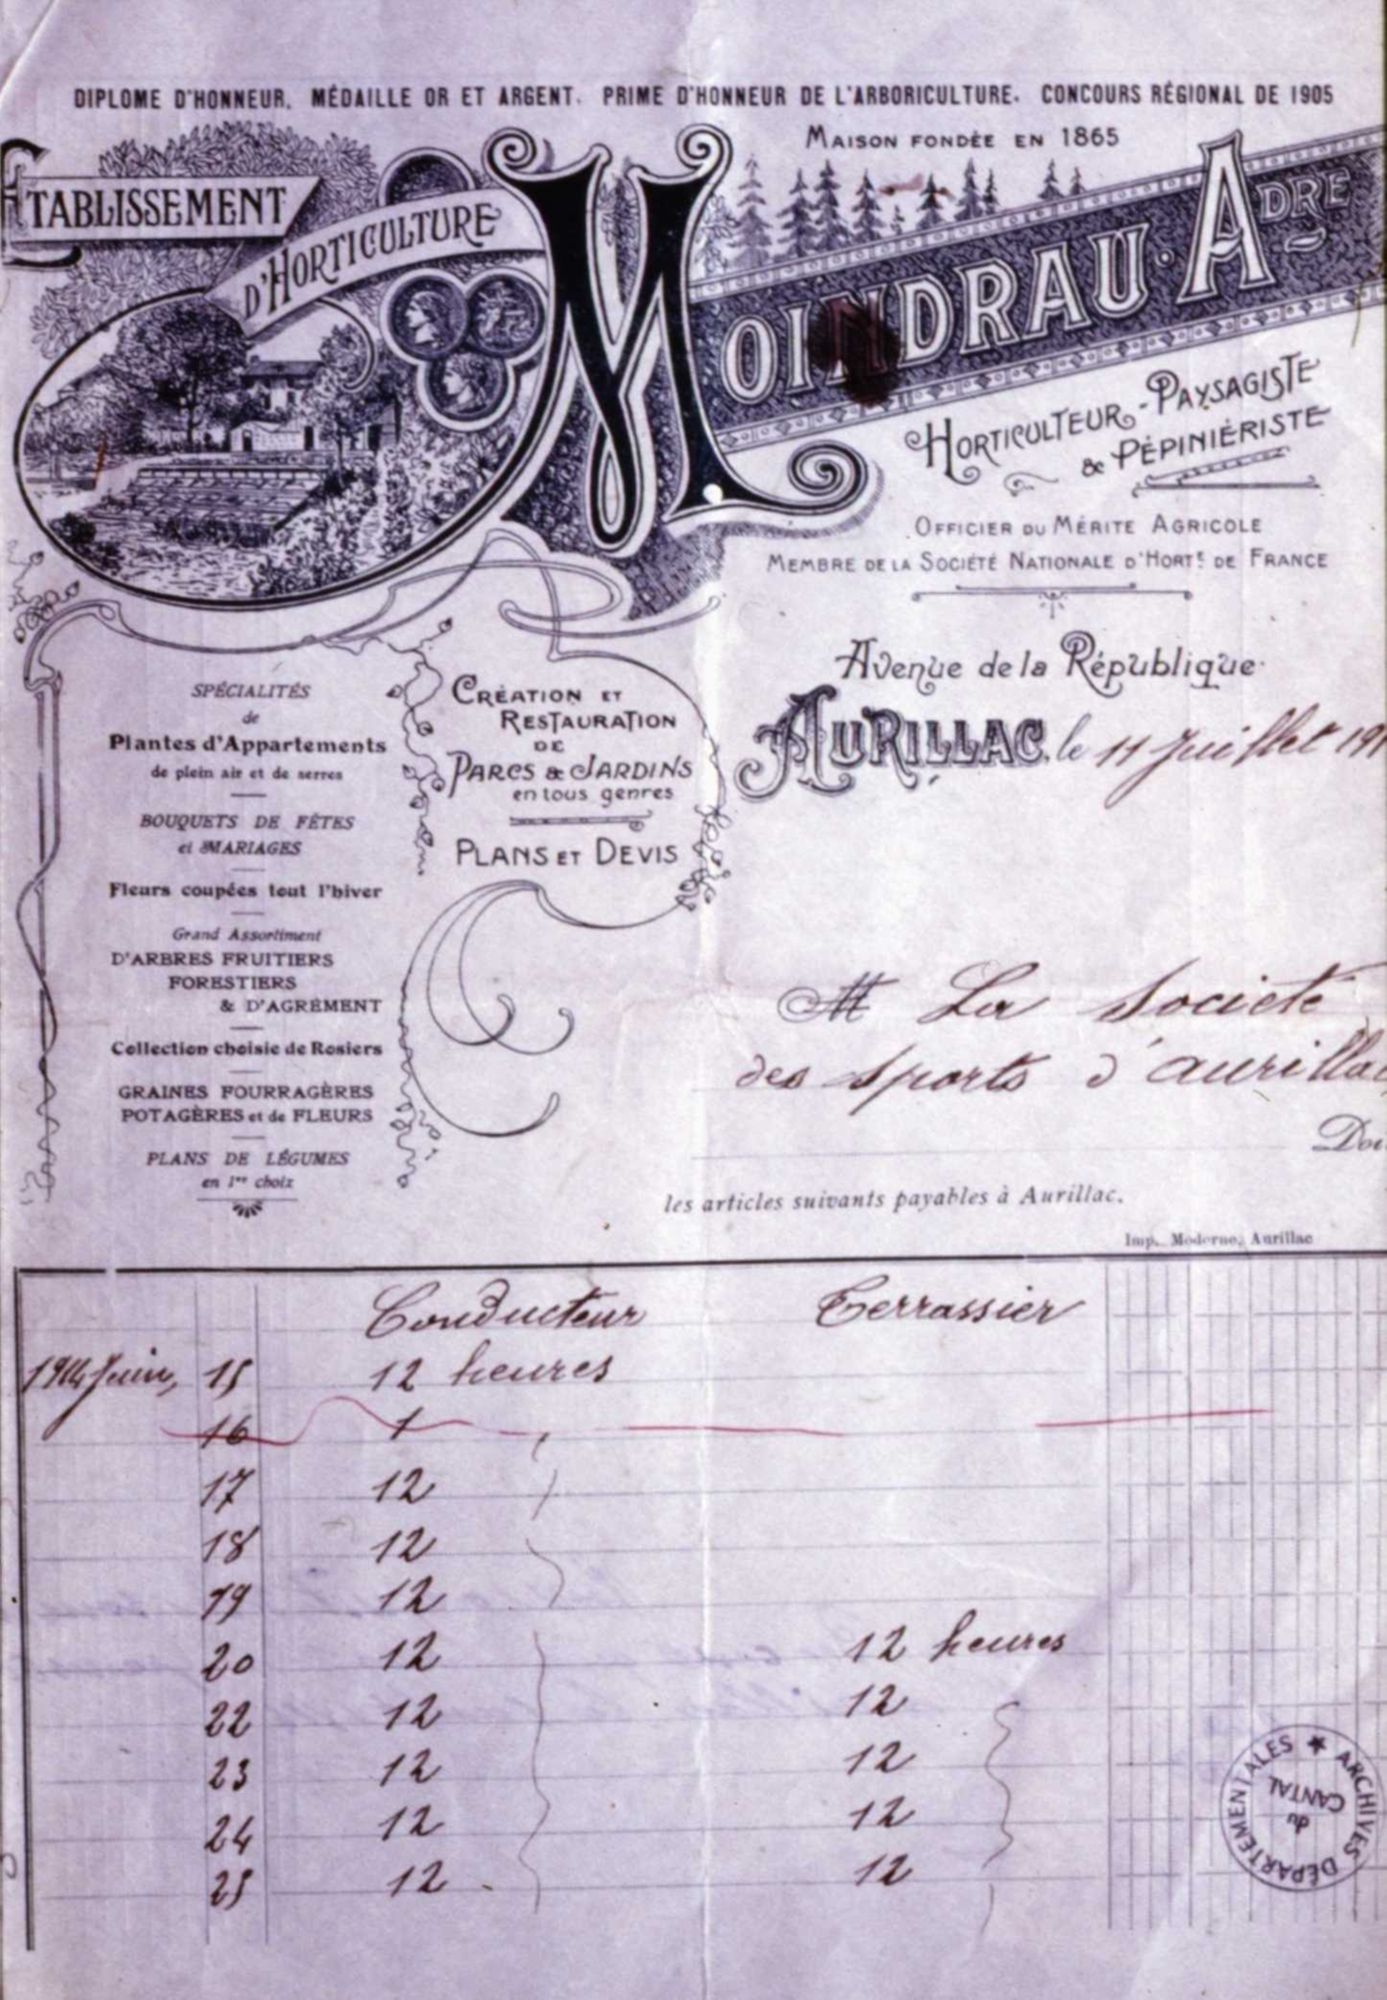 DIPLOME D'HONNEUR. MÉDAILLE OR ET ARGENT. PRIME D'HONNEUR DE L'ARBORICULTURE. CONCOURS RÉGIONAL DE 1905
MAISON FONDÉE EN 1865
ETABLISSEMENT
D'HORTICULTURE
MOINDRAU. ADRE
HORTICULTEUR-PAYSAGISTE
& PÉPINIÉRISTE
OFFICIER DU MÉRITE AGRICOLE
MEMBRE DE LA SOCIÉTÉ NATIONALE D'HORTE DE FRANCE
Avenue de la République
AURILLAC, le 11 Juillet 191
SPÉCIALITÉS
de
Plantes d'Appartements
de plein air et de serres
BOUQUETS DE FÊTES
et MARIAGES
Fleurs coupées tout l'hiver
Grand Assortiment
D'ARBRES FRUITIERS
FORESTIERS
& D'AGRÉMENT
Collection choisie de Rosiers
GRAINES FOURRAGÈRES
POTAGÈRES et de FLEURS
PLANS DE LÉGUMES
en 1er choix
CRÉATION ET
RESTAURATION
DE
PARCS & JARDINS
en tous genres
PLANS ET DEVIS
M La Societé
des sports d'aurillac
Doi
les articles suivants payables à Aurillac.
Imp. Moderne, Aurillac
Conducteur Terrassier
1914 Juin, 15 12 heures
16 1
17 12
18 12
19 12
20 12 12 heures
22 12 12
23 12 12
24 12 12
25 12 12
ARCHIVES DÉPARTEMENTALES ★
du
CANTAL